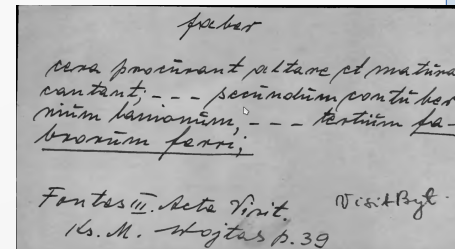 faber
cera procūrant altare et matūra
cantant; --- secūndūm contū ber
niūm lanionūm, --- tertiūm fa-
brorūm ferri;
Fontes III. Acta Visit. VisitByt.
Ks. M. Wojtas p. 39